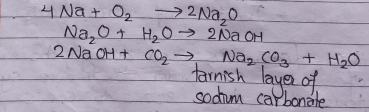 4Na + O₂ → 2Na₂O
Na₂O + H₂O → 2NaOH
2NaOH + CO₂ → Na₂CO₃ + H₂O
tarnish layer of
sodium carbonate